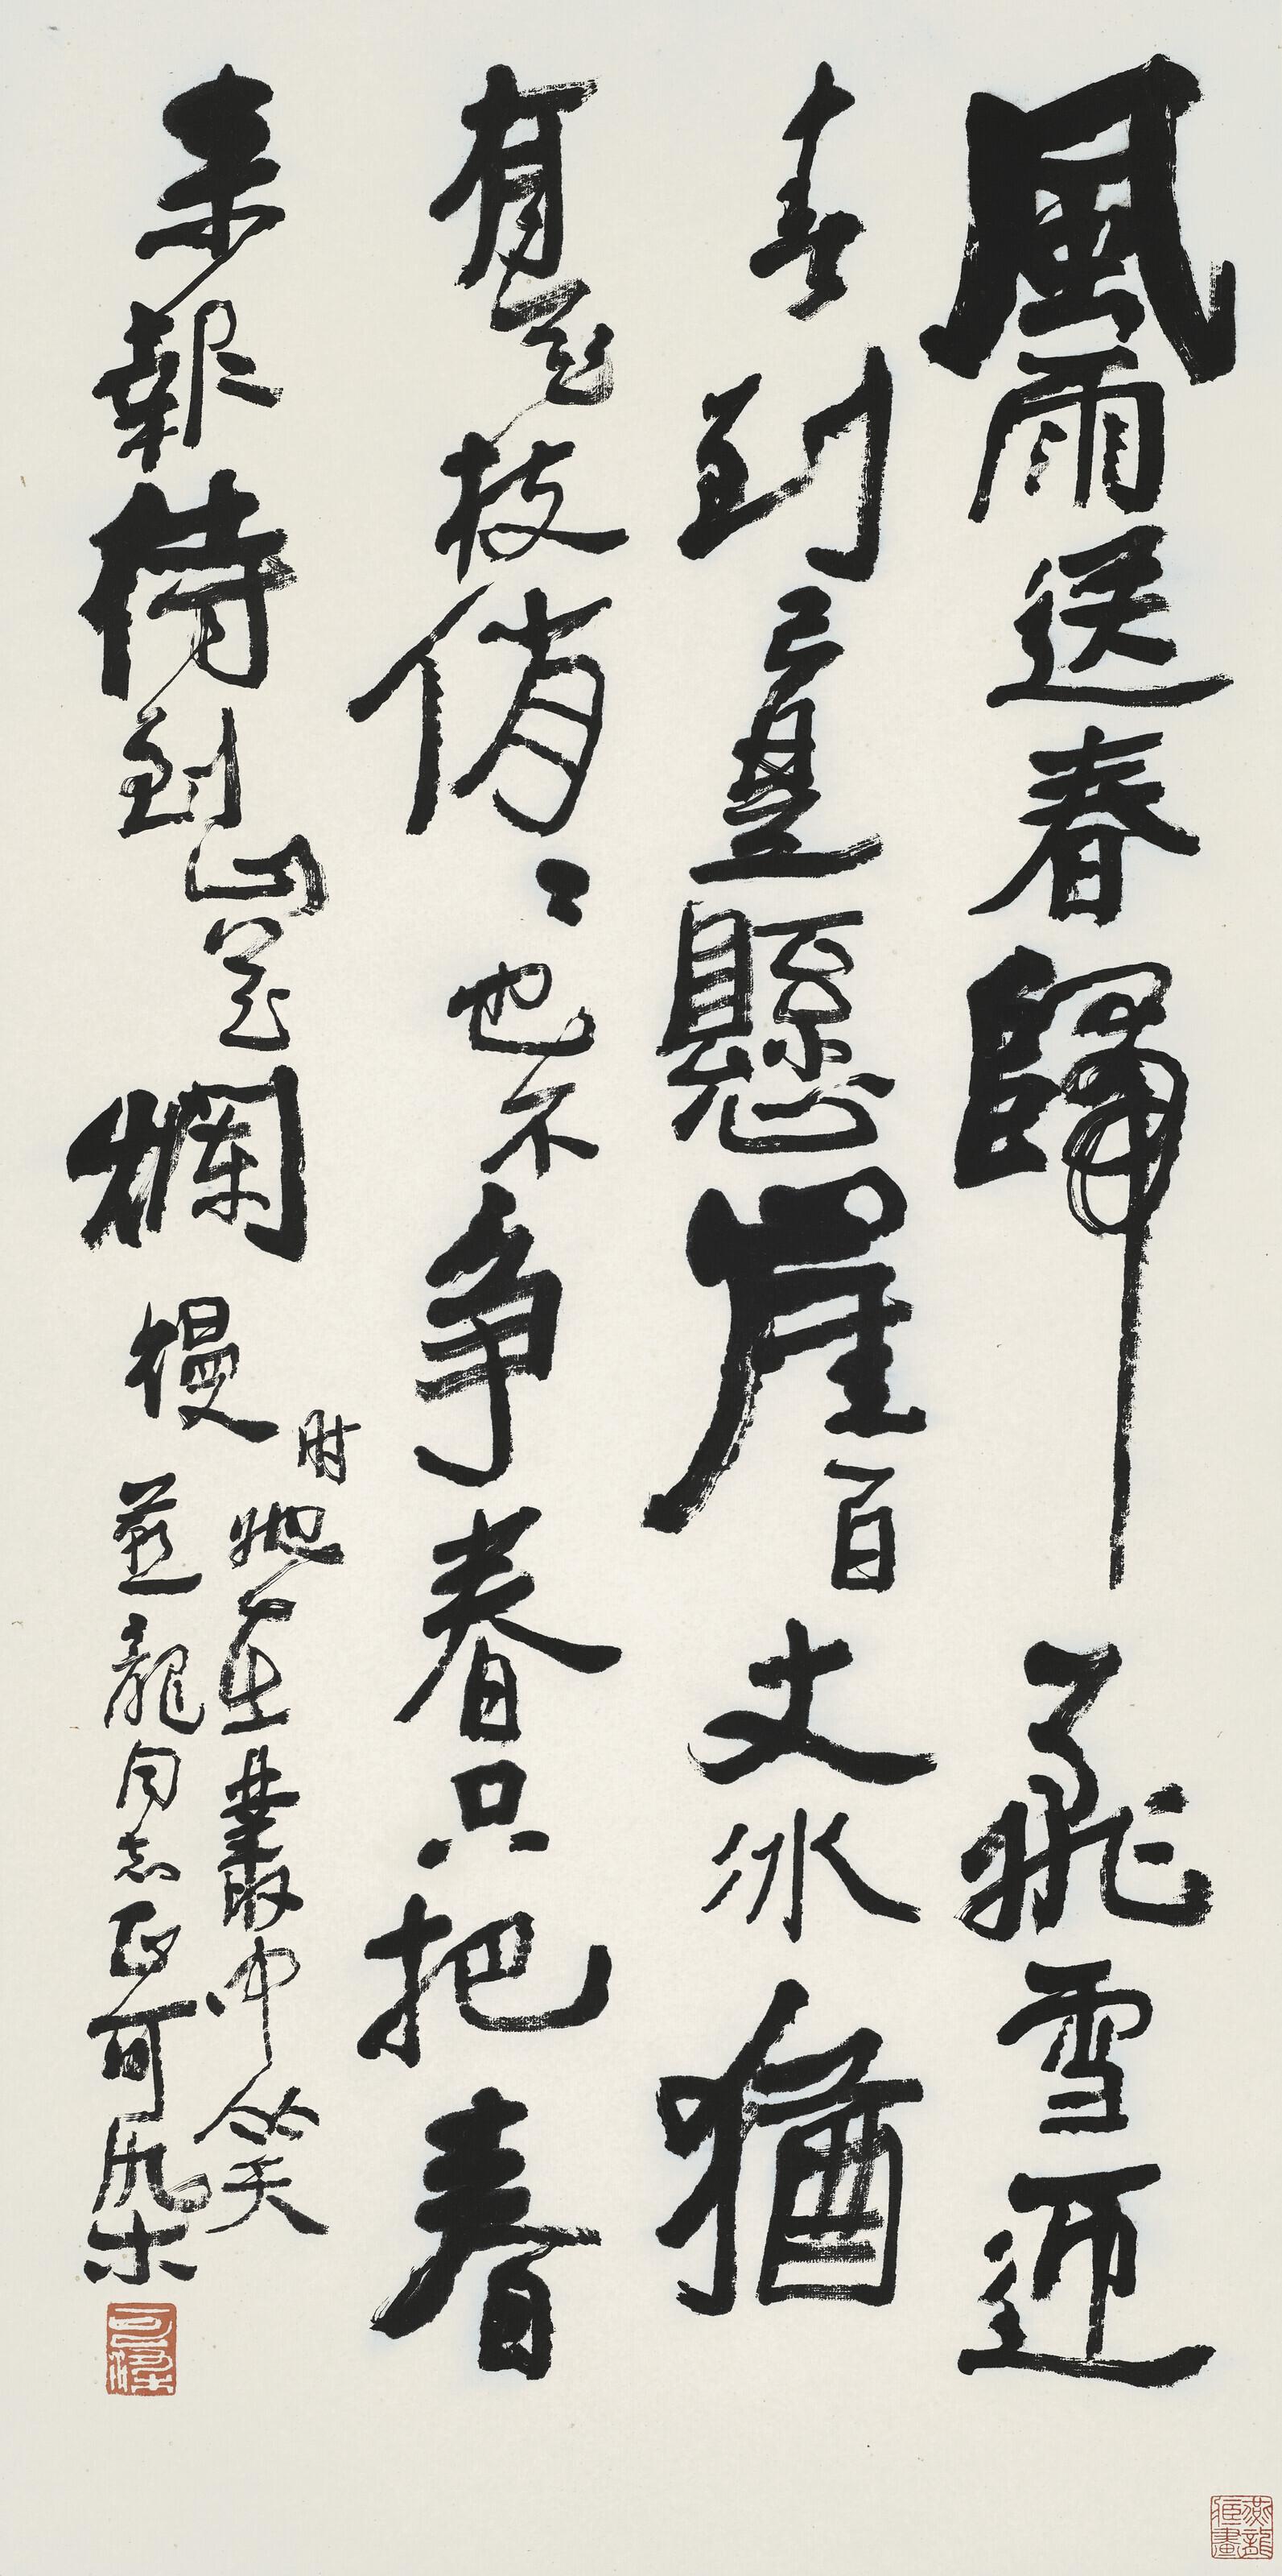 風雨送春歸飛雪迎
春到已是懸崖百丈冰猶
有花枝俏〻也不争春只把春
来報待到山花爛熳
时她在叢中笑
燕龍同志正可染
可染
燕龍
畫